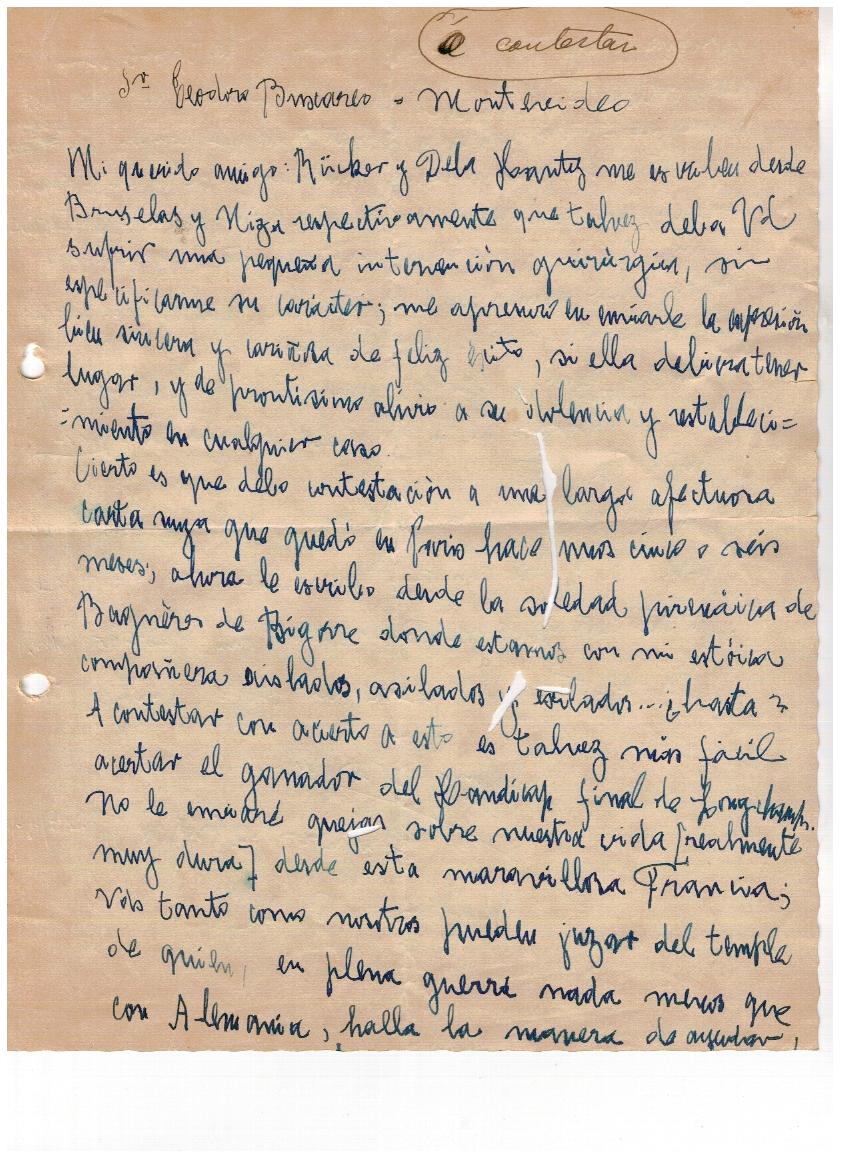 a contestar
Sr Teodoro Buxareo = Montevideo
Mi querido amigo: Rücker y Dela Hantz me escriben desde
Bruselas y Niza respectivamente que talvez deba Vd
sufrir una pequeña intervención quirúrgica, sin
especificarme su carácter; me apresuro en enviarle la expresión
bien sincera y cariñosa de feliz éxito, si ella debiera tener
lugar, y de prontísimo alivio a su dolencia y restableci=
=miento en cualquier caso.
Cierto es que debo contestación a una larga afectuosa
carta suya que quedó en Paris hace unos cinco o seis
meses; ahora le escribo desde la soledad pirenáica de
Bagnères de Bigorre donde estamos con mi estóica
compañera aislados, asilados y exilados... ¿hasta?
A contestar con acierto a esto es talvez más fácil
acertar el ganador del Handicap final de Longchamp.
No le enviaré quejas sobre nuestra vida [realmente
muy dura] desde esta maravillosa Francia;
Vds tanto como nosotros pueden juzgar del temple
de quien, en plena guerra nada menos que
con Alemania, halla la manera de ayudar,